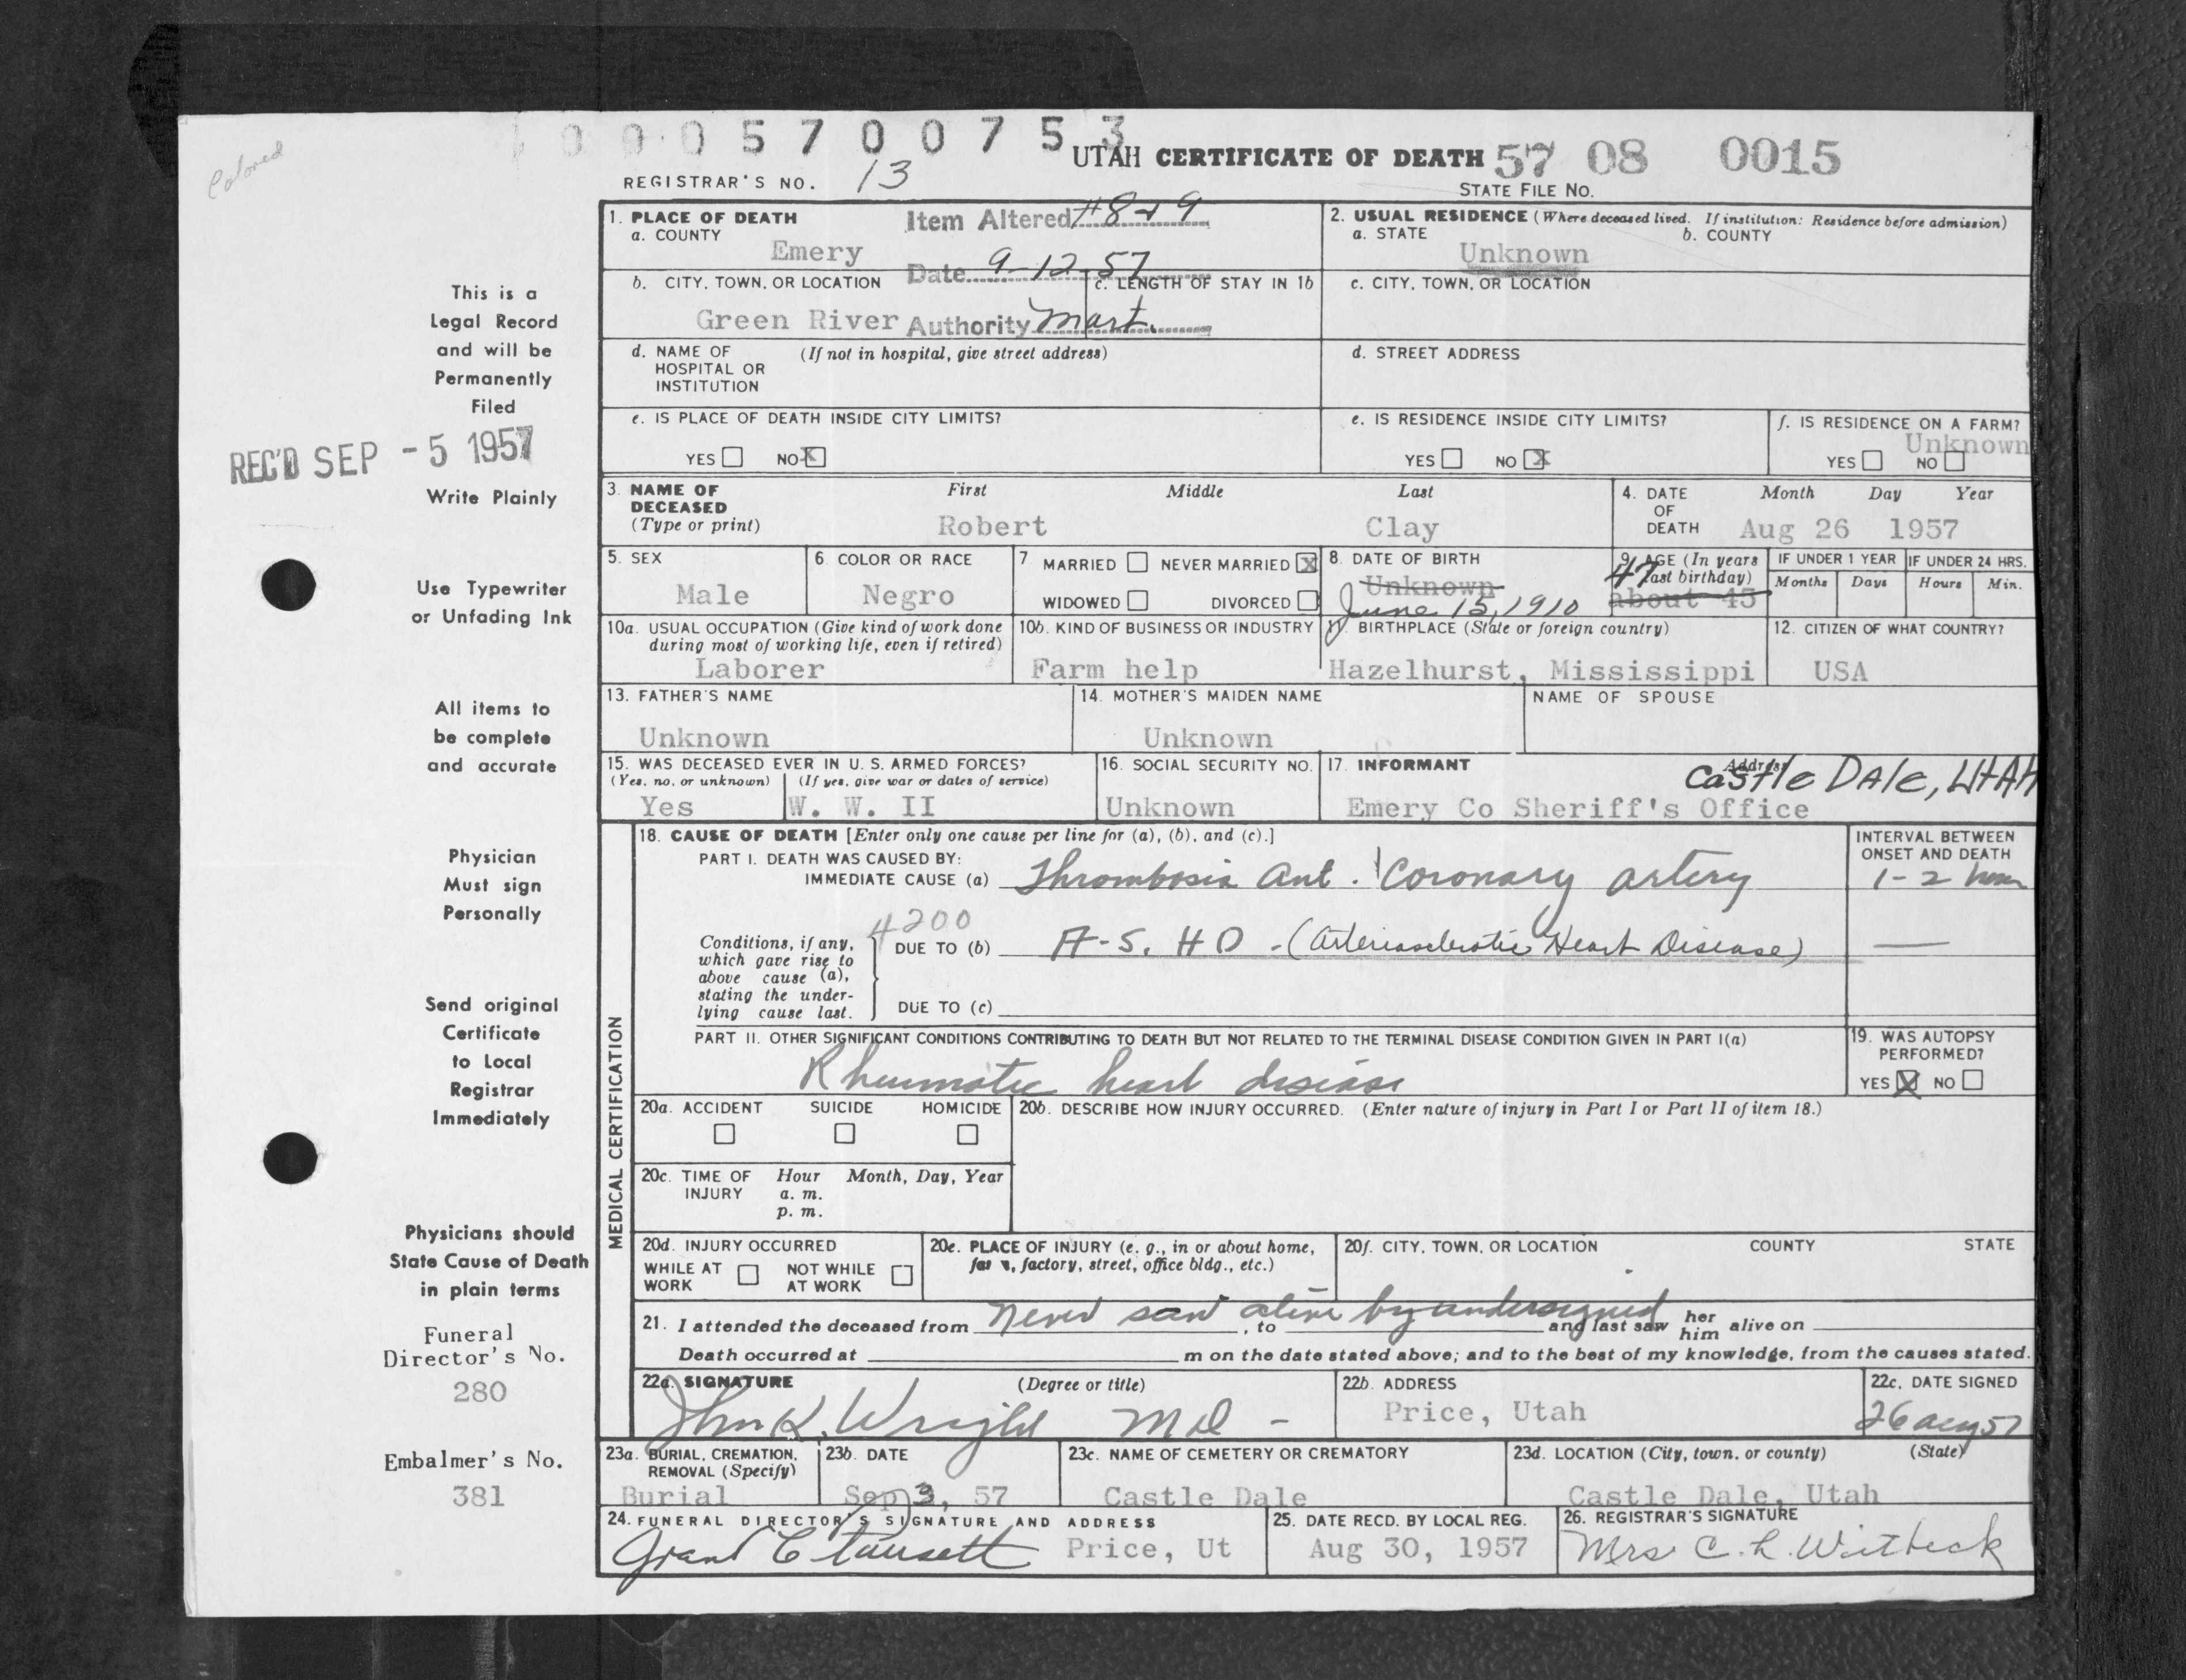 Colored
0005700753
UTAH CERTIFICATE OF DEATH 57 08 0015
REGISTRAR'S NO. 13
STATE FILE NO.
1. PLACE OF DEATH
a. COUNTY
Emery
Item Altered #8 + 9
Date 9-12-57
Authority Mart.
2. USUAL RESIDENCE (Where deceased lived. If institution: Residence before admission)
a. STATE b. COUNTY
Unknown
b. CITY, TOWN, OR LOCATION
Green River
c. LENGTH OF STAY IN 1b
c. CITY, TOWN, OR LOCATION
d. NAME OF HOSPITAL OR INSTITUTION (If not in hospital, give street address)
d. STREET ADDRESS
e. IS PLACE OF DEATH INSIDE CITY LIMITS?
YES NO X
e. IS RESIDENCE INSIDE CITY LIMITS?
YES NO X
f. IS RESIDENCE ON A FARM?
Unknown
YES NO
3. NAME OF DECEASED (Type or print)
First Middle Last
Robert Clay
4. DATE OF DEATH
Month Day Year
Aug 26 1957
5. SEX
Male
6 COLOR OR RACE
Negro
7 MARRIED NEVER MARRIED X
WIDOWED DIVORCED
8. DATE OF BIRTH
Unknown
June 15, 1910
9. AGE (In years last birthday)
47
about 45
IF UNDER 1 YEAR
Months Days
IF UNDER 24 HRS.
Hours Min.
10a. USUAL OCCUPATION (Give kind of work done during most of working life, even if retired)
Laborer
10b. KIND OF BUSINESS OR INDUSTRY
Farm help
11. BIRTHPLACE (State or foreign country)
Hazelhurst, Mississippi
12. CITIZEN OF WHAT COUNTRY?
USA
13. FATHER'S NAME
Unknown
14. MOTHER'S MAIDEN NAME
Unknown
NAME OF SPOUSE
15. WAS DECEASED EVER IN U. S. ARMED FORCES?
(Yes, no, or unknown) (If yes, give war or dates of service)
Yes W. W. II
16. SOCIAL SECURITY NO.
Unknown
17. INFORMANT Address
Castle Dale, Utah
Emery Co Sheriff's Office
MEDICAL CERTIFICATION
18. CAUSE OF DEATH [Enter only one cause per line for (a), (b), and (c).]
PART I. DEATH WAS CAUSED BY:
IMMEDIATE CAUSE (a) Thrombosis Ant. Coronary artery
INTERVAL BETWEEN ONSET AND DEATH
1-2 hour
4200
Conditions, if any, which gave rise to above cause (a), stating the underlying cause last.
DUE TO (b) A-S. H D - (Arteriosclerotic Heart Disease)
DUE TO (c)
PART II. OTHER SIGNIFICANT CONDITIONS CONTRIBUTING TO DEATH BUT NOT RELATED TO THE TERMINAL DISEASE CONDITION GIVEN IN PART I(a)
Rheumatic heart disease
19. WAS AUTOPSY PERFORMED?
YES X NO
20a. ACCIDENT SUICIDE HOMICIDE
20b. DESCRIBE HOW INJURY OCCURRED. (Enter nature of injury in Part I or Part II of item 18.)
20c. TIME OF INJURY Hour Month, Day, Year
a. m.
p. m.
20d. INJURY OCCURRED
WHILE AT WORK NOT WHILE AT WORK
20e. PLACE OF INJURY (e. g., in or about home, farm, factory, street, office bldg., etc.)
20f. CITY, TOWN, OR LOCATION COUNTY STATE
Never saw alive by undersigned
21. I attended the deceased from , to and last saw her him alive on
Death occurred at m on the date stated above; and to the best of my knowledge, from the causes stated.
22a. SIGNATURE (Degree or title)
John K. Wright MD -
22b. ADDRESS
Price, Utah
22c. DATE SIGNED
26 aug 57
23a. BURIAL, CREMATION, REMOVAL (Specify)
Burial
23b. DATE
Sep 3, 57
23c. NAME OF CEMETERY OR CREMATORY
Castle Dale
23d. LOCATION (City, town, or county) (State)
Castle Dale, Utah
24. FUNERAL DIRECTOR'S SIGNATURE AND ADDRESS
Grant C Fausett Price, Ut
25. DATE RECD. BY LOCAL REG.
Aug 30, 1957
26. REGISTRAR'S SIGNATURE
Mrs C. L. Witbeck
This is a
Legal Record
and will be
Permanently
Filed
REC'D SEP - 5 1957
Write Plainly
Use Typewriter
or Unfading Ink
All items to
be complete
and accurate
Physician
Must sign
Personally
Send original
Certificate
to Local
Registrar
Immediately
Physicians should
State Cause of Death
in plain terms
Funeral
Director's No.
280
Embalmer's No.
381